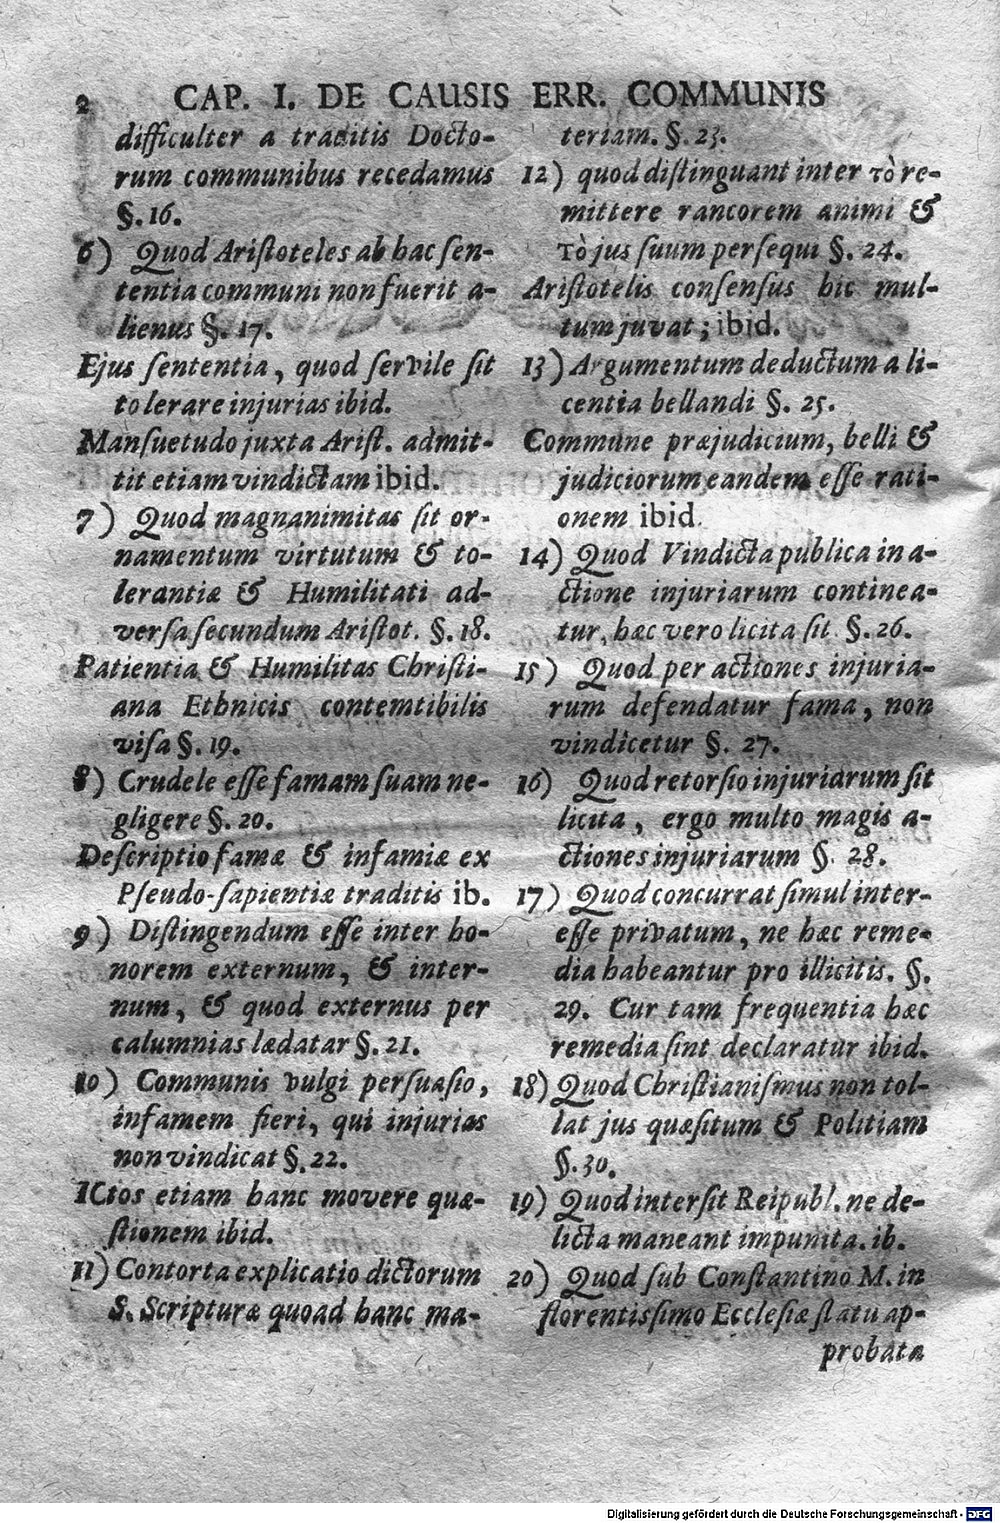 2 CAP. I. DE CAUSIS ERR. COMMUNIS
difficulter a traditis Docto-
rum communibus recedamus
§. 16.
6) Quod Aristoteles ab hac sen-
tentia communi non fuerit a-
lienus §. 17.
Ejus sententia, quod servile sit
tolerare injurias ibid.
Mansuetudo juxta Arist. admit-
tit etiam vindictam ibid.
7) Quod magnanimitas sit or-
namentum virtutum & to-
lerantiæ & Humilitati ad-
versa secundum Aristot. §. 18.
Patientia & Humilitas Christi-
ana Ethnicis contemtibilis
visa §. 19.
8) Crudele esse famam suam ne-
gligere §. 20.
Descriptio famæ & infamiæ ex
Pseudo-sapientiæ traditis ib.
9) Distingendum esse inter ho-
norem externum, & inter-
num, & quod externus per
calumnias lædatar §. 21.
10) Communis vulgi persuasio,
infamem fieri, qui injurias
non vindicat §. 22.
ICtos etiam hanc movere quæ-
stionem ibid.
11) Contorta explicatio dictorum
S. Scripturæ quoad hanc ma-
teriam. §. 23.
12) quod distinguant inter τὸ re-
mittere rancorem animi &
τὸ jus suum persequi §. 24.
Aristotelis consensus hic mul-
tum juvat; ibid.
13) Argumentum deductum a li-
centia bellandi §. 25.
Commune præjudicium, belli &
judiciorum eandem esse rati-
onem ibid.
14) Quod Vindicta publica in a-
ctione injuriarum continea-
tur, hæc vero licita sit §. 26.
15) Quod per actiones injuria-
rum defendatur fama, non
vindicetur §. 27.
16) Quod retorsio injuriarum sit
licita, ergo multo magis a-
ctiones injuriarum §. 28.
17) Quod concurrat simul inter-
esse privatum, ne hæc reme-
dia habeantur pro illicitis. §.
29. Cur tam frequentia hæc
remedia sint declaratur ibid.
18) Quod Christianismus non tol-
lat jus quæsitum & Politiam
§. 30.
19) Quod intersit Reipubl. ne de-
licta maneant impunita. ib.
20) Quod sub Constantino M. in
florentissimo Ecclesiæ statu ap-
probata
Digitalisierung gefördert durch die Deutsche Forschungsgemeinschaft - DFG